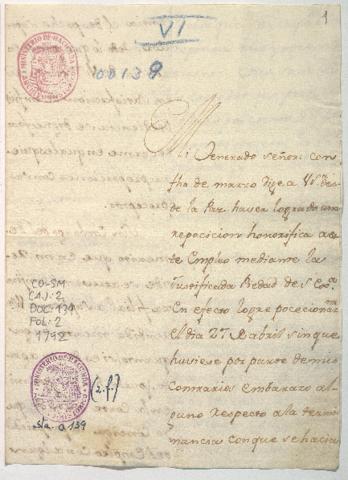 1
VI
00138
MINISTERIO DE HACIENDA
Mi Venerado señor: con
fha de marzo dije a Vs. des
de la Paz haver logrado una
reposicion honorifica a es
te Empleo mediante la
justificada Bedad de S. Exc.ª
En efecto logre pocecionar
el dia 27 de abril sin que
huviese por parte de mis
Contrarios embarazo al
guno respecto a la termi
nancia con que se hacia
CO-SM
CAJ: 2
DOC: 139
FOL: 2
1792
MINISTERIO DE HACIENDA
(2.f)
sta. a 139